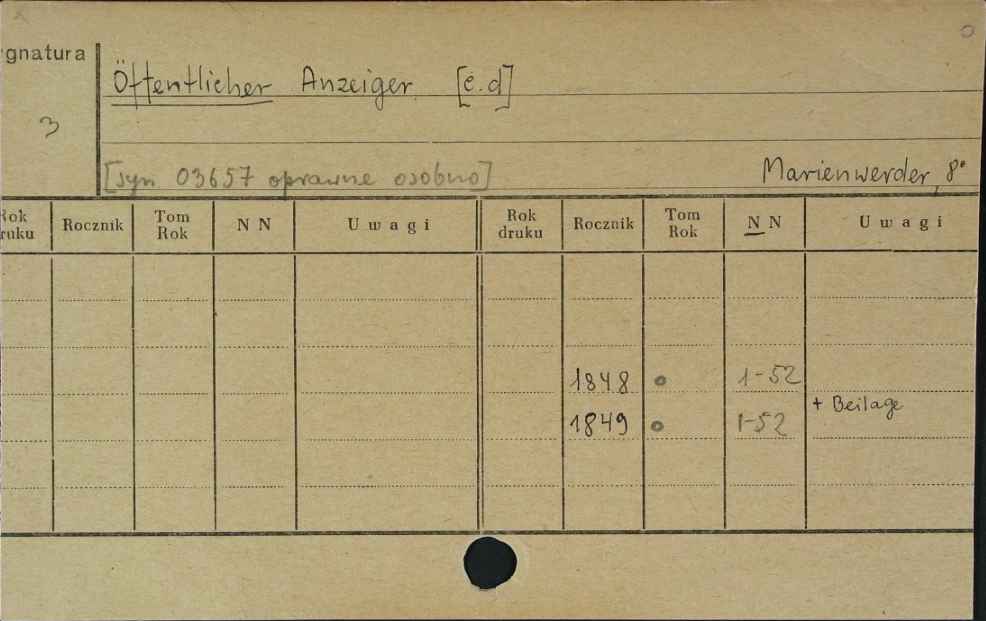 gnatura
Öffentlicher Anzeiger [c.d]
3
[syn 03657 oprawne osobno]
Marienwerder, 8°
Rok druku Rocznik Tom Rok N N Uwagi Rok druku Rocznik Tom Rok N N Uwagi
1848 o 1-52
+ Beilage
1849 o 1-52